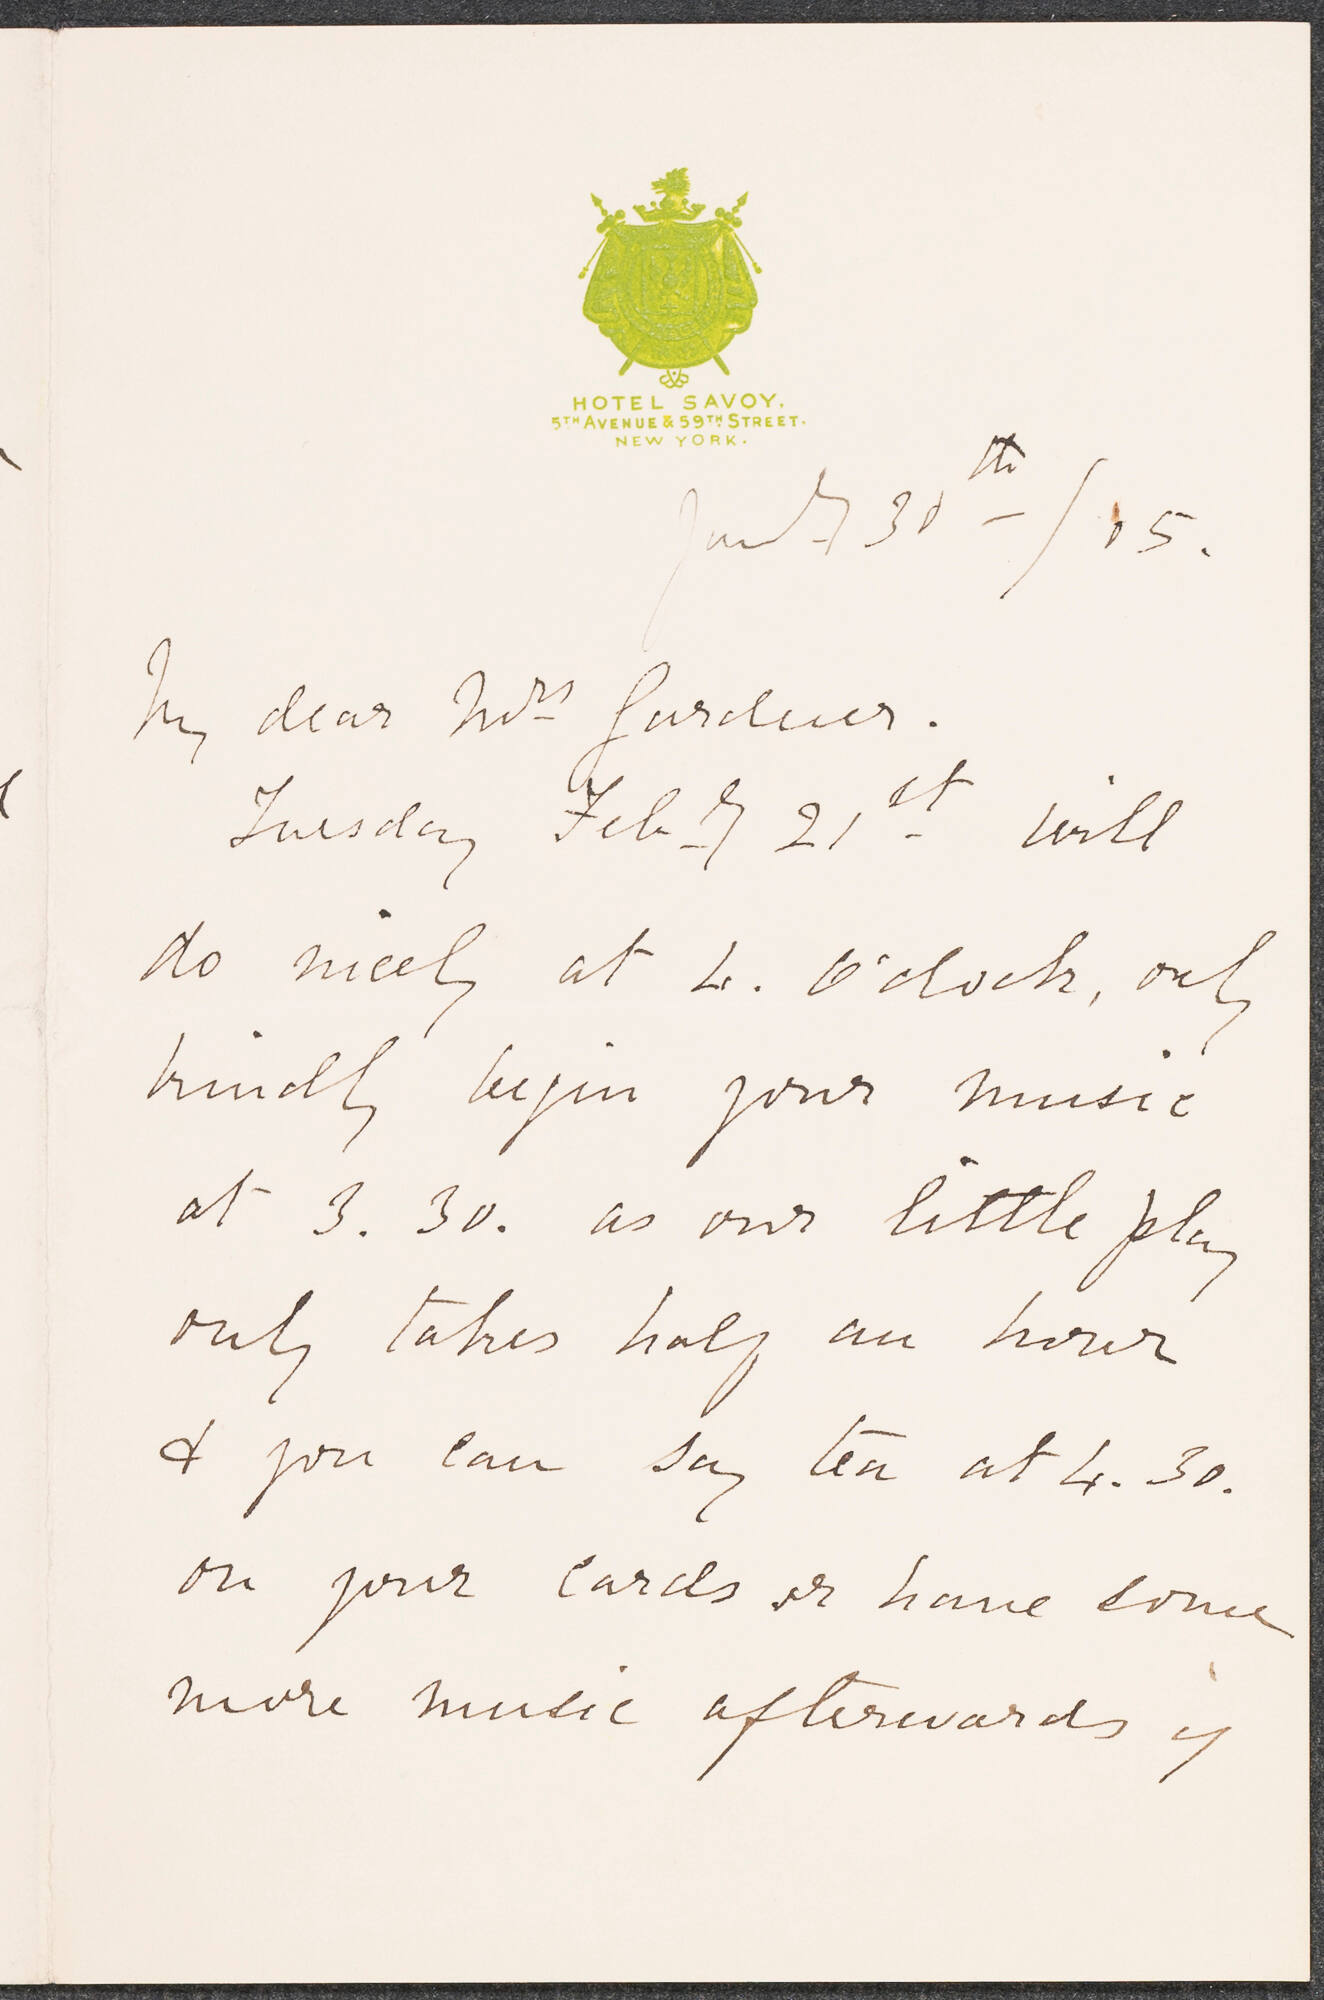 HOTEL SAVOY.
5TH AVENUE & 59TH STREET.
NEW YORK.
Jan'y 30th / 05.
My dear Mrs Gardner.
Tuesday Feb'y 21st will
do nicely at 4. O'clock, only
kindly begin your music
at 3.30. as our little play
only takes half an hour
& you can say tea at 4.30.
on your cards or have some
more music afterwards if